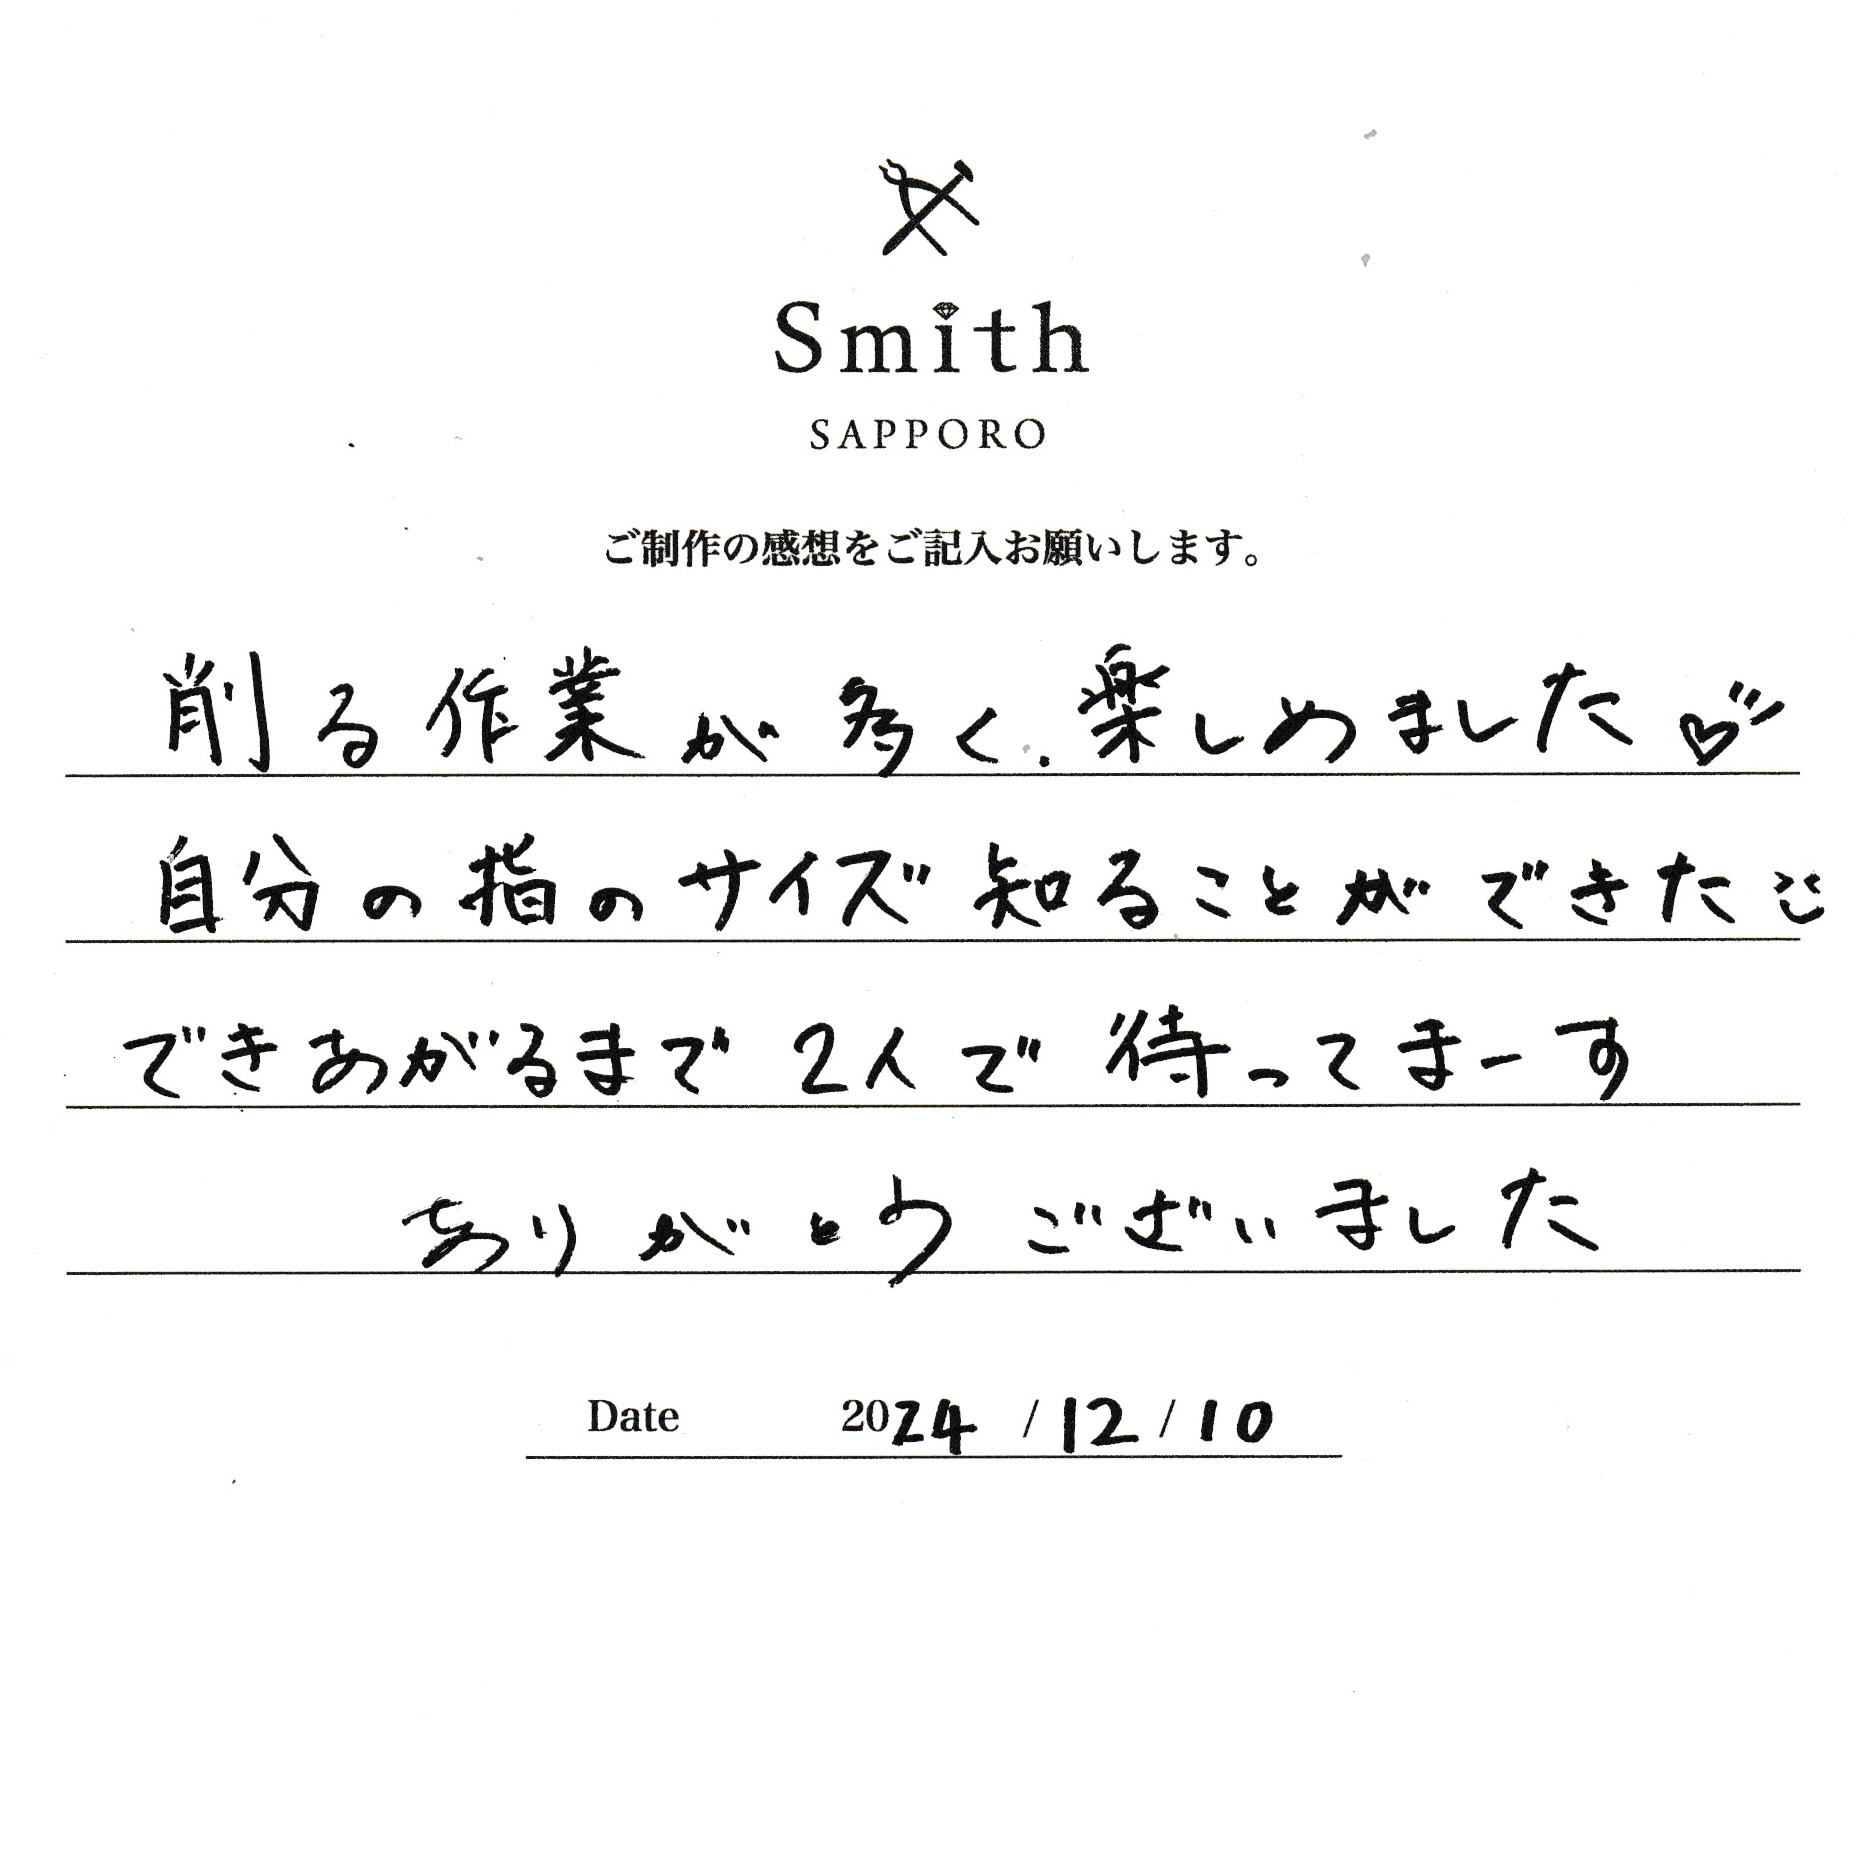 Smith
SAPPORO
ご制作の感想をご記入お願いします。
削る作業が多く、楽しめました♡
自分の指のサイズ知ることができた
できあがるまで2人で待ってまーす
ありがとうございました
Date 2024 / 12 / 10